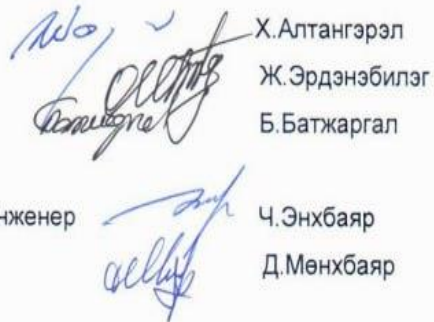 Х.Алтангэрэл
Ж.Эрдэнэбилэг
Б.Батжаргал
нженер Ч.Энхбаяр
Д.Мөнхбаяр